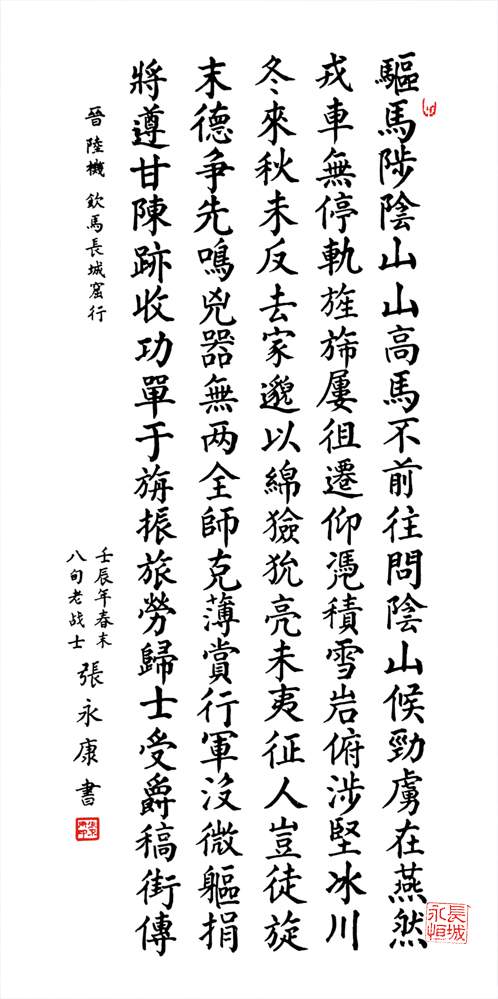 驅馬陟陰山山高馬不前往問陰山候勁虜在燕然
戎車無停軌旌斾屢徂遷仰凴積雪岩俯涉堅冰川
冬來秋未反去家邈以綿獫狁亮未夷征人豈徒旋
末德爭先鳴兇器無两全師克薄賞行軍沒微軀捐
將遵甘陳跡收功單于旃振旅勞歸士受爵稿街傳
晉 陸機 欽馬長城窟行
壬辰年春末
八旬老战士 張永康書
長城
永恒